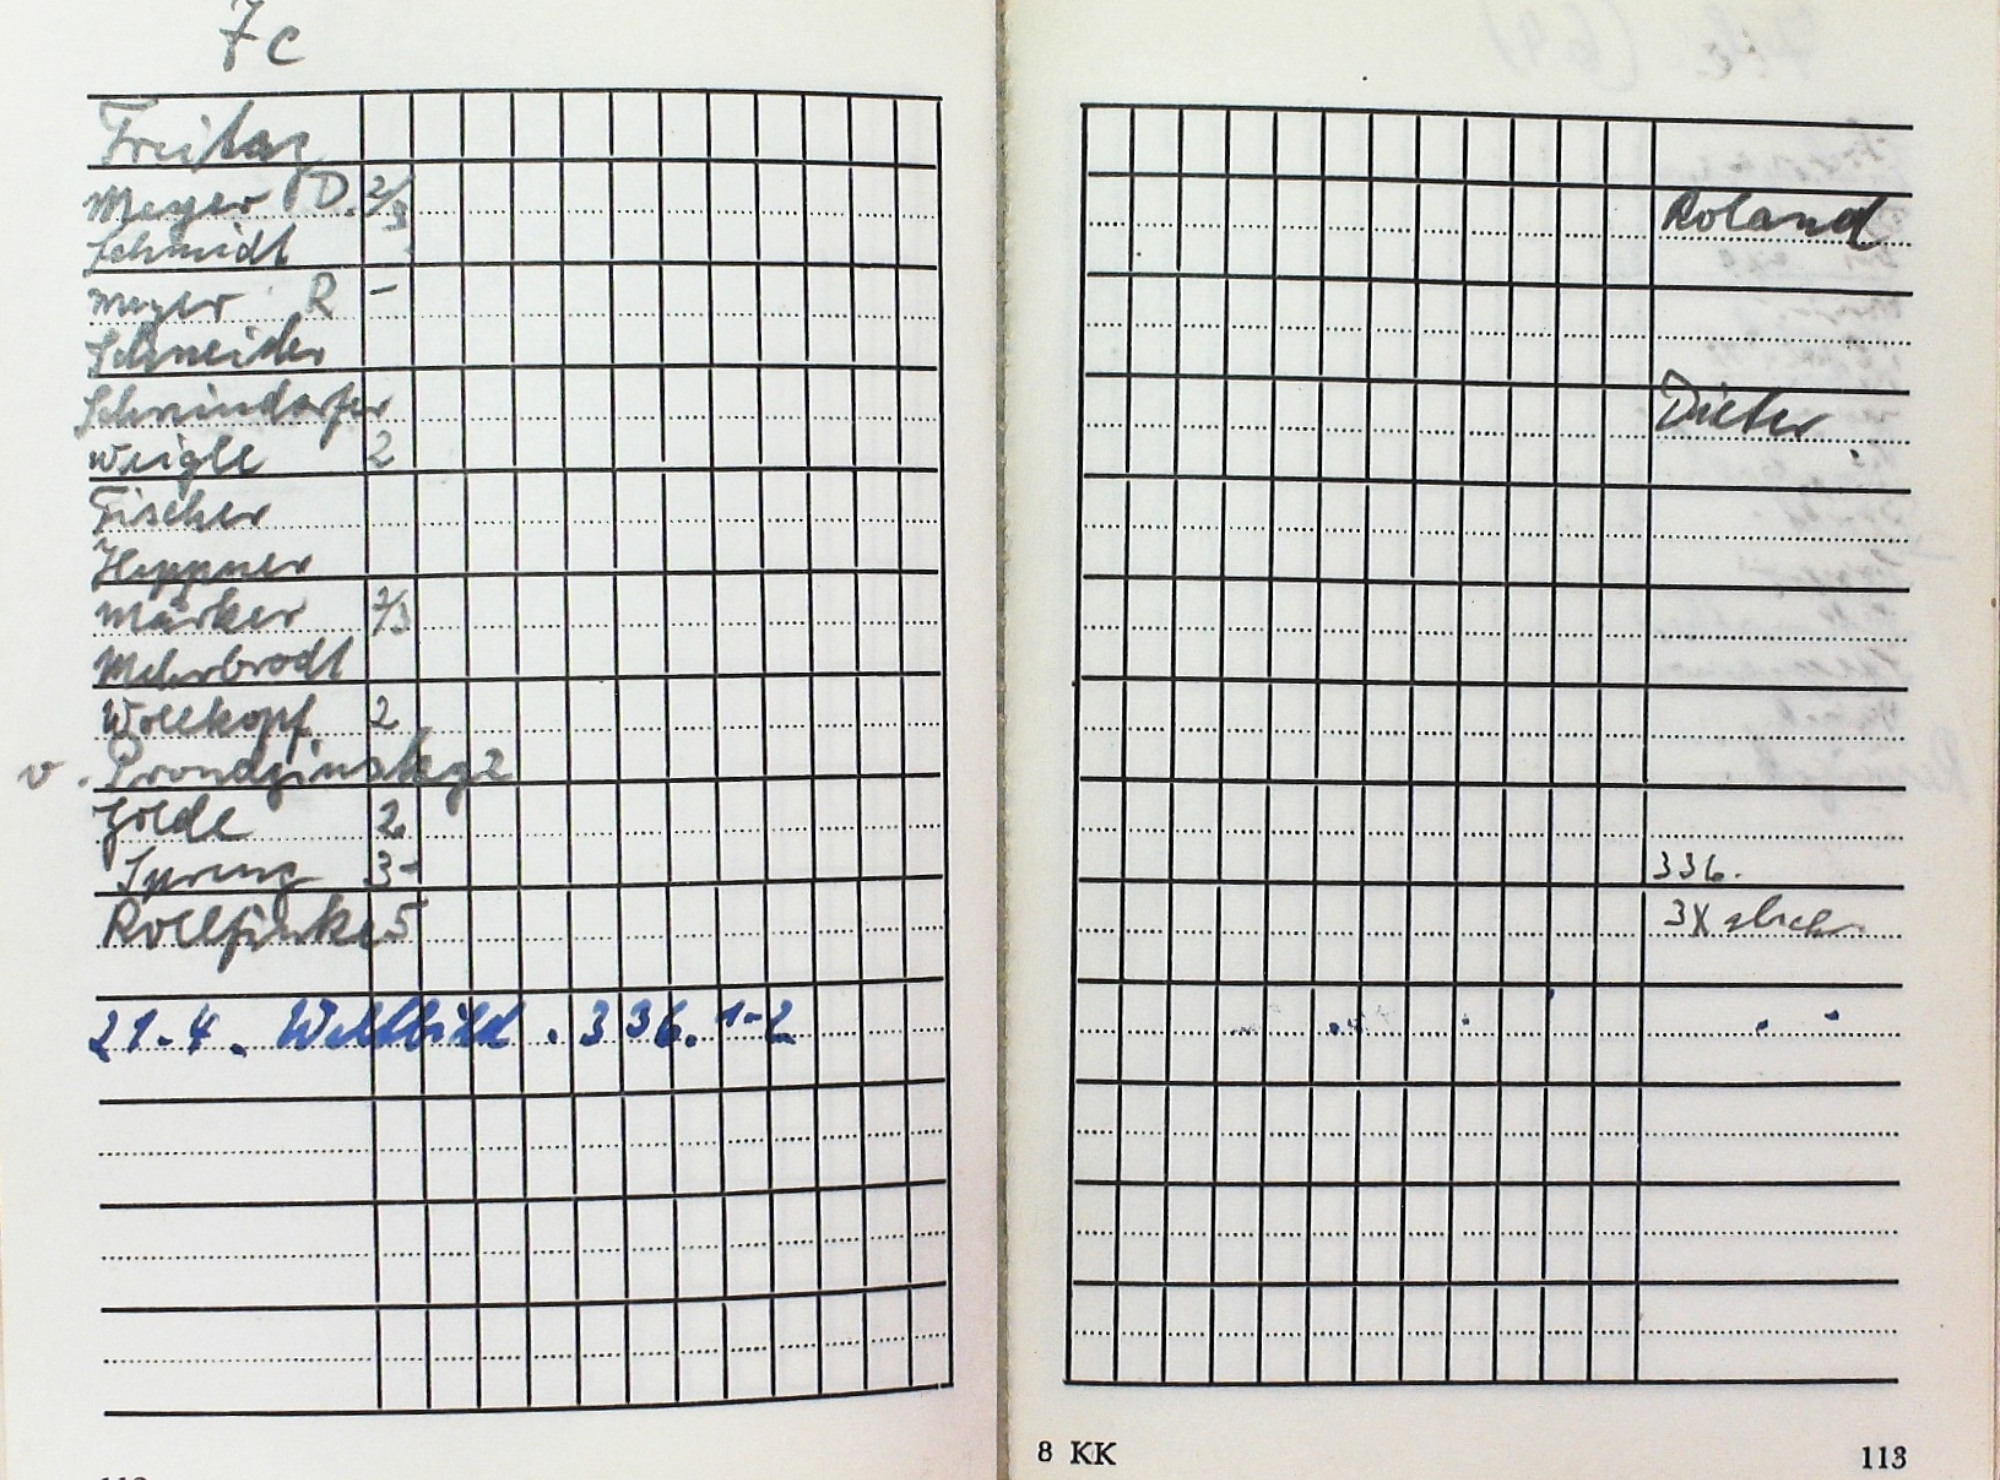 7c
Freitag
Meyer D. 2/3
Roland
Schmidt
Meyer R -
Schneider
Schrindorfer
Dieter
Weigle 2
Fischer
Heppner
Märker 2/3
Mehrbrodt
Wollkopf 2
v. Prondzinsky 2
Golde 2
Spreng 3-
336.
Rollfinke 5
3X
21.4. Weltbild . 336. 1-2
8 KK
113